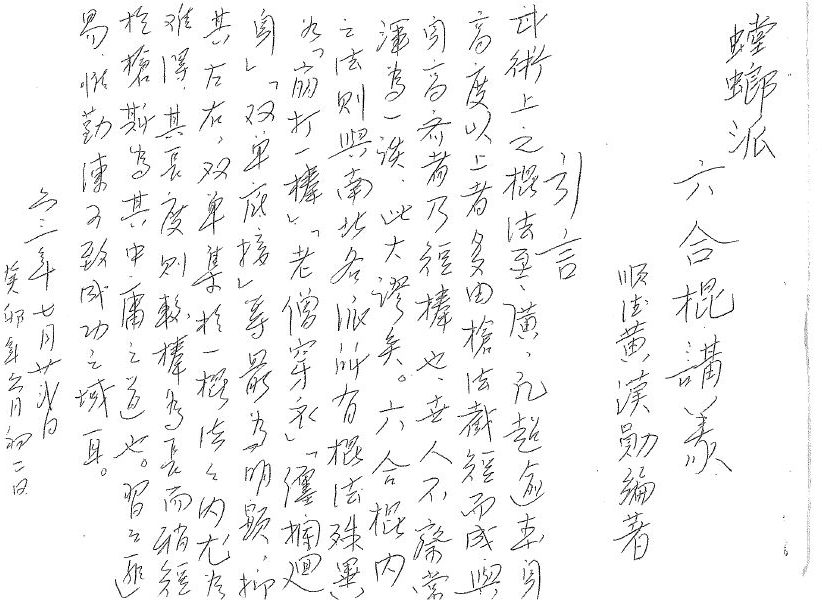 螳螂派
六合棍講義
順德黃漢勛編著
引言
武術上之棍法至廣、凡超逾本身
高度以上者多由槍法截短而成與
身高齊者乃短棒也、世人不察常
渾為一談、此大謬矣。六合棍內
之法則與南北各派所有棍法殊異
如「崩打一棒」「老僧穿衣」「纏攔迴
身」「双單底接」等最為明顯、抑
其左右、双單集於一棍法之內尤為
难得、其長度則較棒為長而稍短
於槍斯為其中庸之道也。習之匪
易、惟勤練可致成功之域耳。
六三年七月廿式日
癸卯年六月初二日